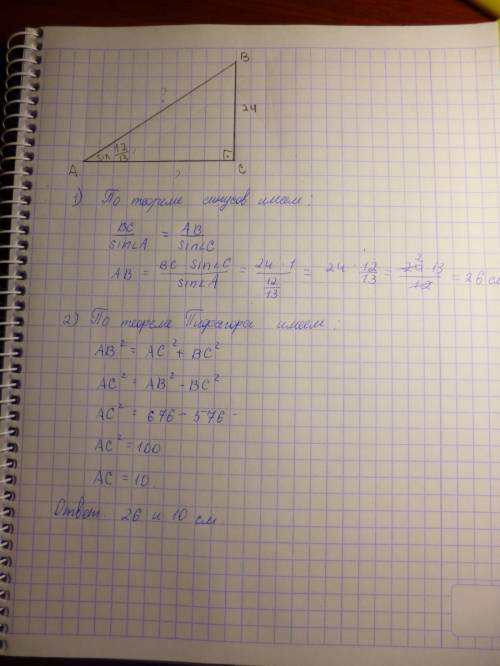 B
?
24
sin 12/13
A
?
C
1) По теореме синусов имеем:
BC/sin∠A = AB/sin∠C
AB = BC · sin∠C/sin∠A = 24 · 1/(12/13) = 24 : 12/13 = 24 · 13/12 = 26 см
2) По теореме Пифагора имеем:
AB² = AC² + BC²
AC² = AB² - BC²
AC² = 676 - 576 -
AC² = 100
AC = 10.
Ответ. 26 и 10 см